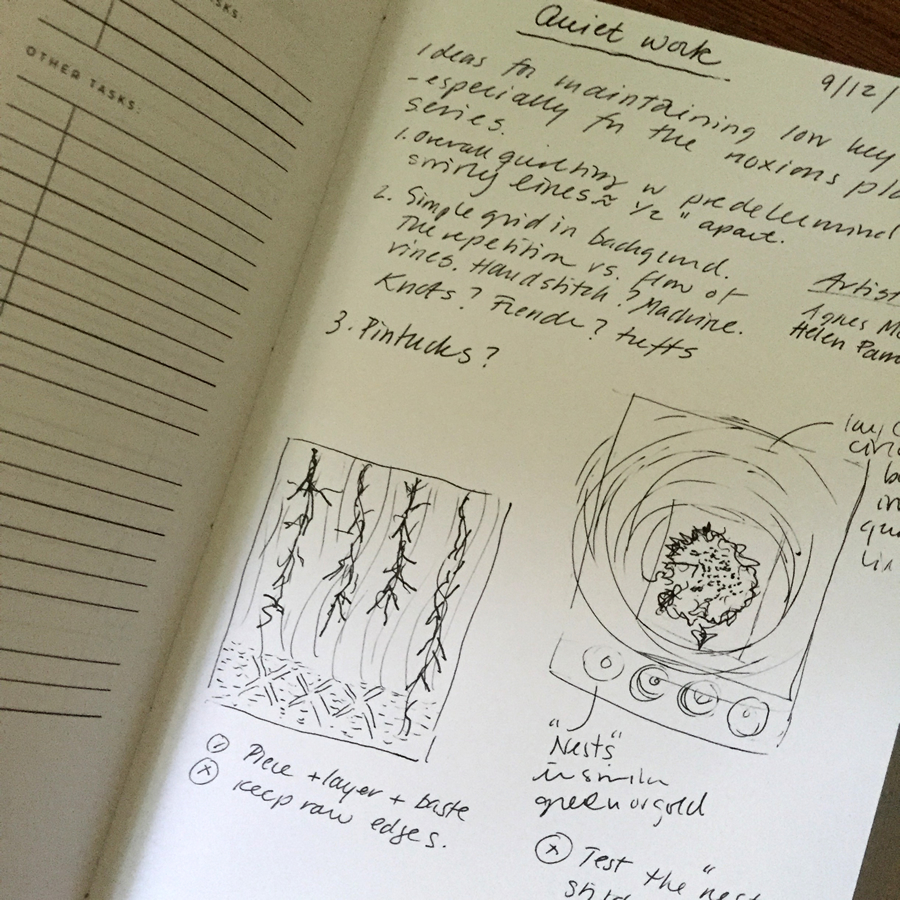 KS:
OTHER TASKS:
Quiet work
9/12/
Ideas for maintaining low key
- especially for the noxious pla
series.
1. Overall quilting w predetermined
swirly lines ≈ 1/2" apart.
2. Simple grid in background.
The repetition vs. flow of
vines. Handstitch? Machine.
Knots? French? tufts
3. Pintucks?
Artist
Agnes Ma
Helen Pam
lay
circ
b
in
qu
lin
Piece + layer + baste
Keep raw edges.
"Nests"
in similar
green or gold
Test the "nest